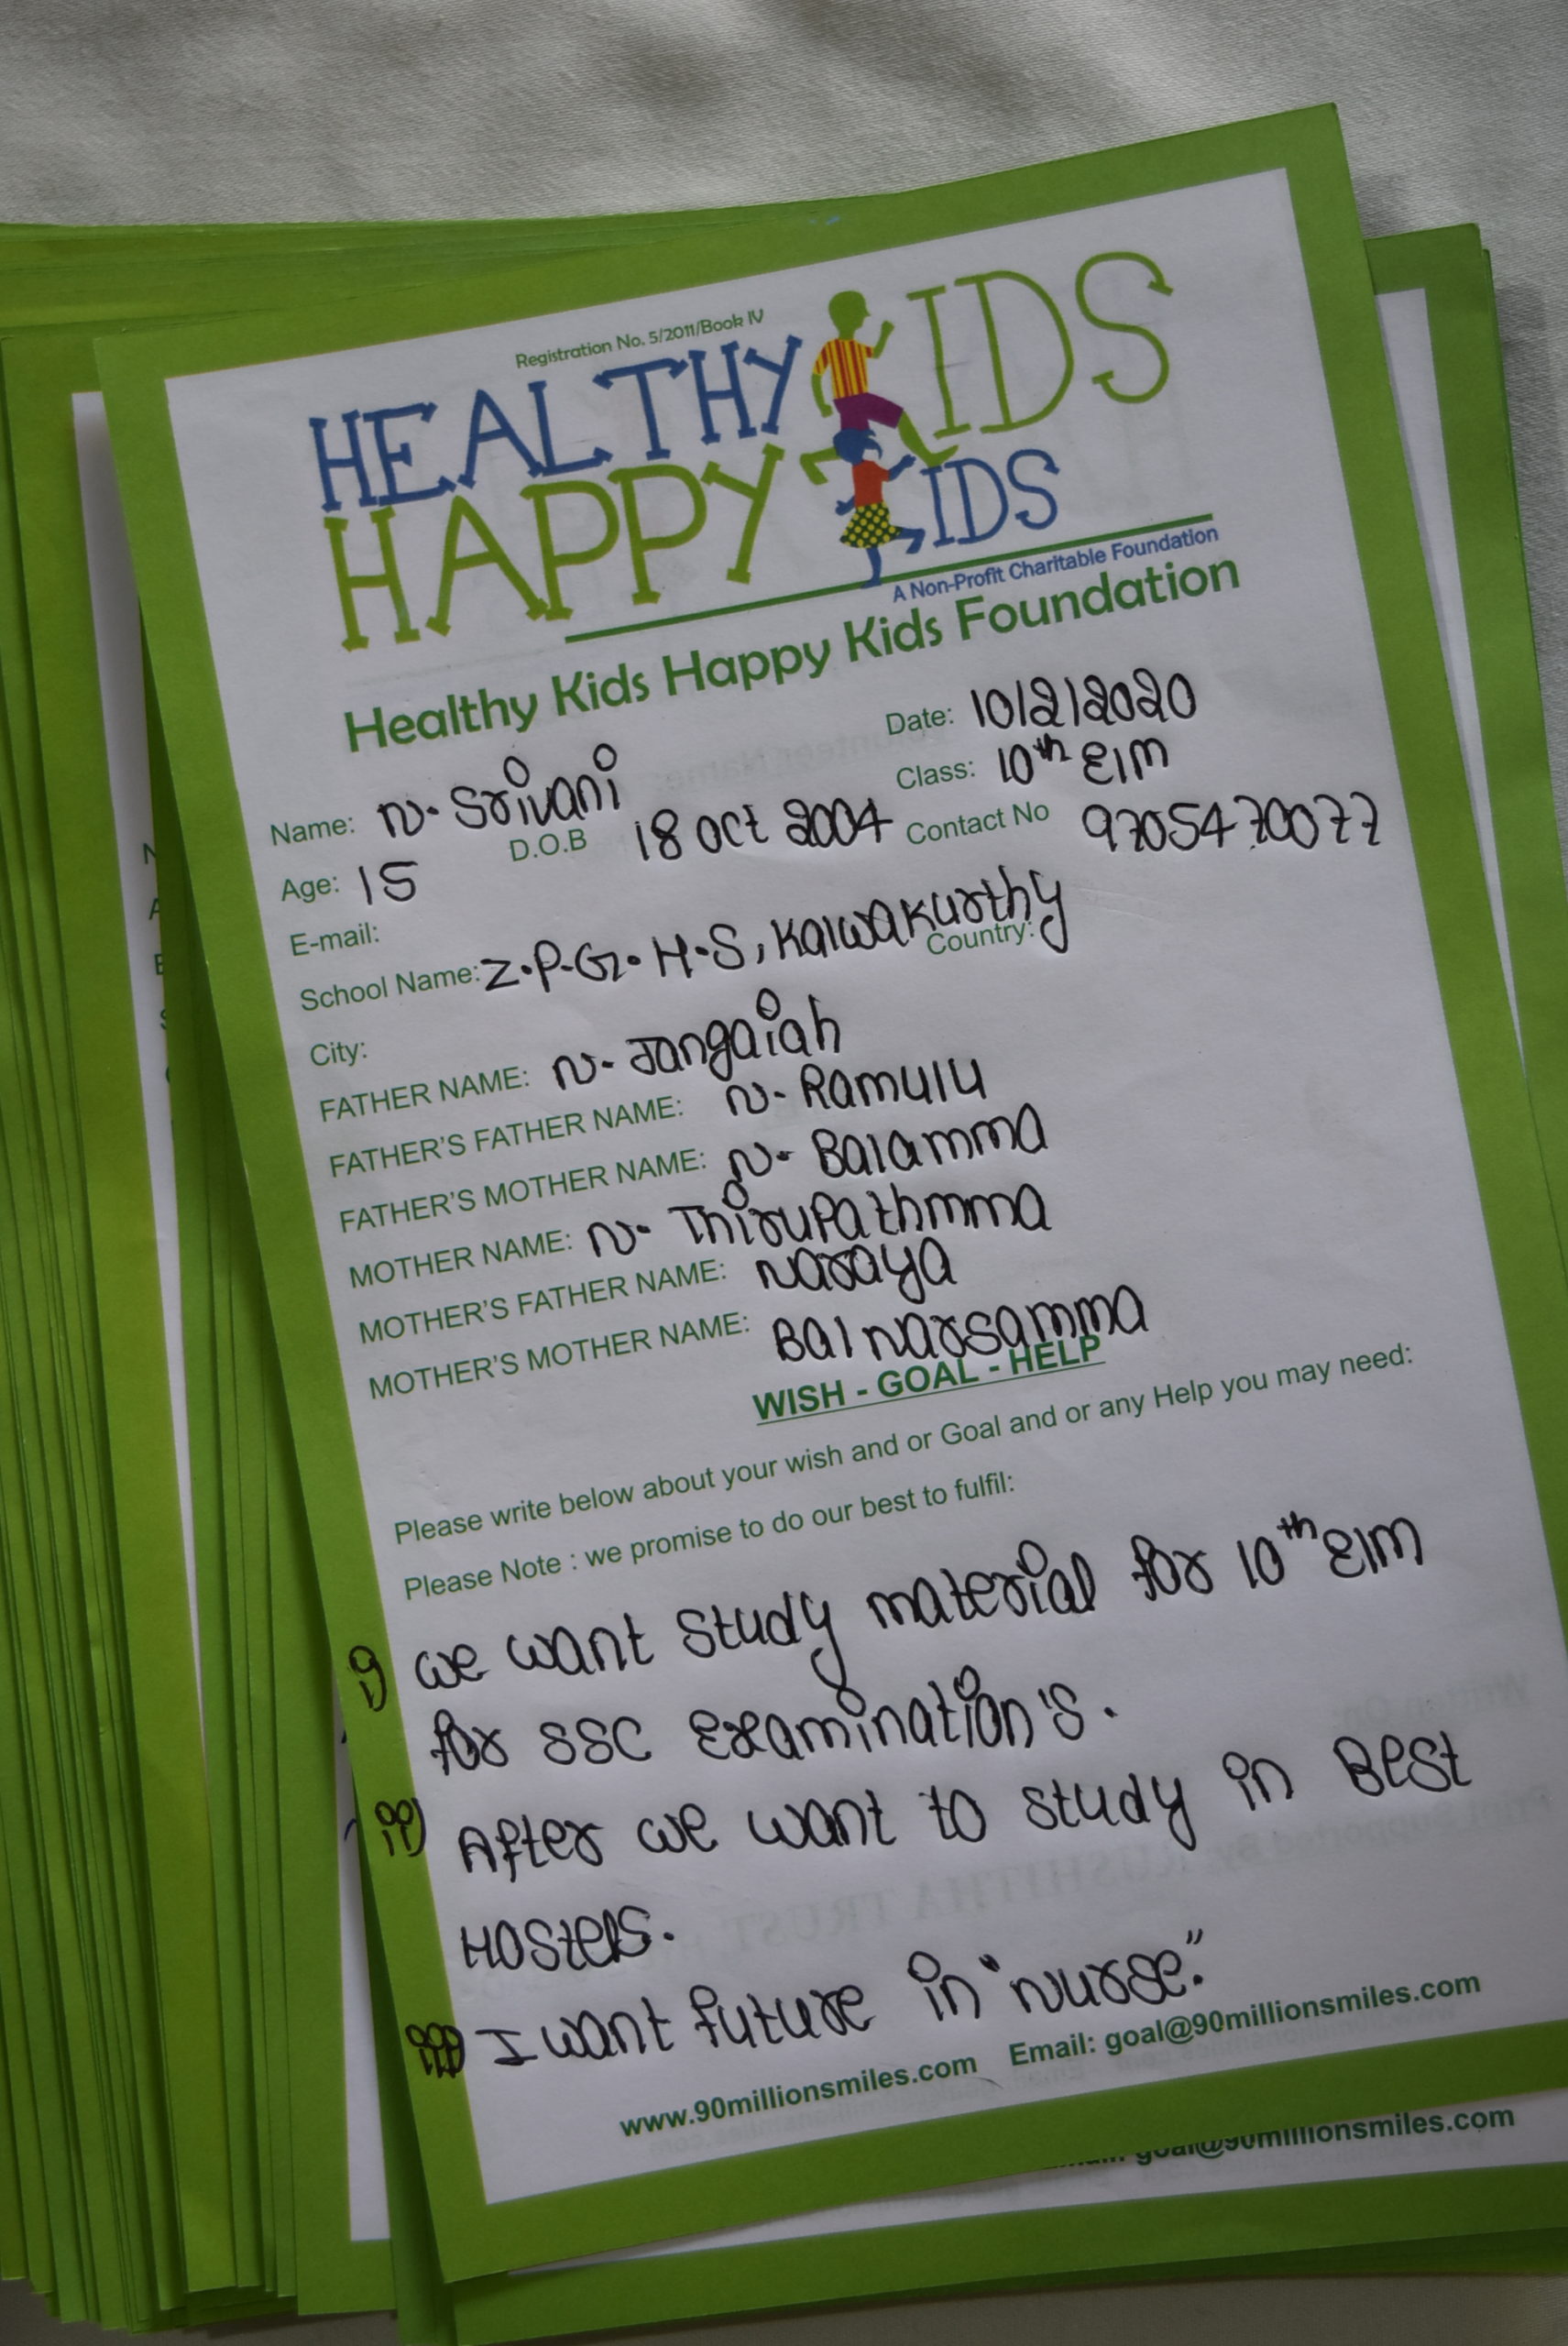 Registration No. 5/2011/Book IV
HEALTHY KIDS
HAPPY KIDS
A Non-Profit Charitable Foundation
Healthy Kids Happy Kids Foundation
Date: 10/2/2020
Name: N. Srivani
Class: 10th E/M
Age: 15 D.O.B 18 oct 2004 Contact No 9705470077
E-mail:
School Name: Z.P.G.H.S, Kalwakurthy Country:
City:
FATHER NAME: N. Jangaiah
FATHER'S FATHER NAME: N. Ramulu
FATHER'S MOTHER NAME: N. Balamma
MOTHER NAME: N. Thirupathmma
MOTHER'S FATHER NAME: Naraya
MOTHER'S MOTHER NAME: Bal Narsamma
WISH - GOAL - HELP
Please write below about your wish and or Goal and or any Help you may need:
Please Note : we promise to do our best to fulfil:
i) we want study material for 10th E/M
for SSC Examination's.
ii) After we want to study in Best
Hostels.
iii) I want future in "Nurse."
www.90millionsmiles.com Email: goal@90millionsmiles.com
goal@90millionsmiles.com